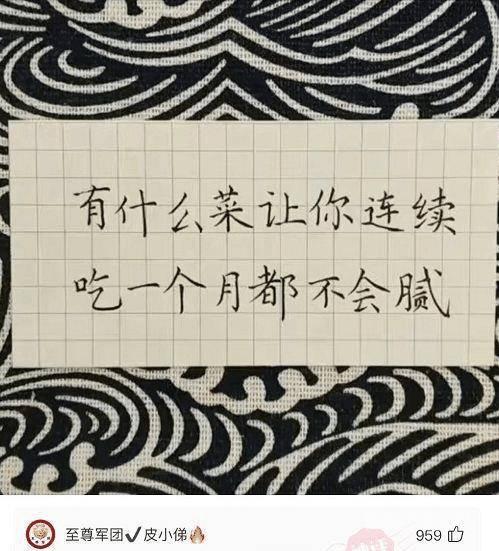 有什么菜让你连续
吃一个月都不会腻
至尊军团✔皮小俤🔥
959